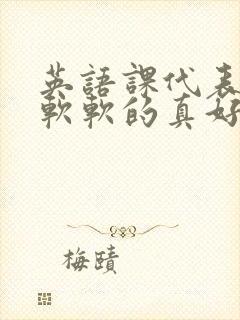 英語課代表
軟軟的真好
梅賾